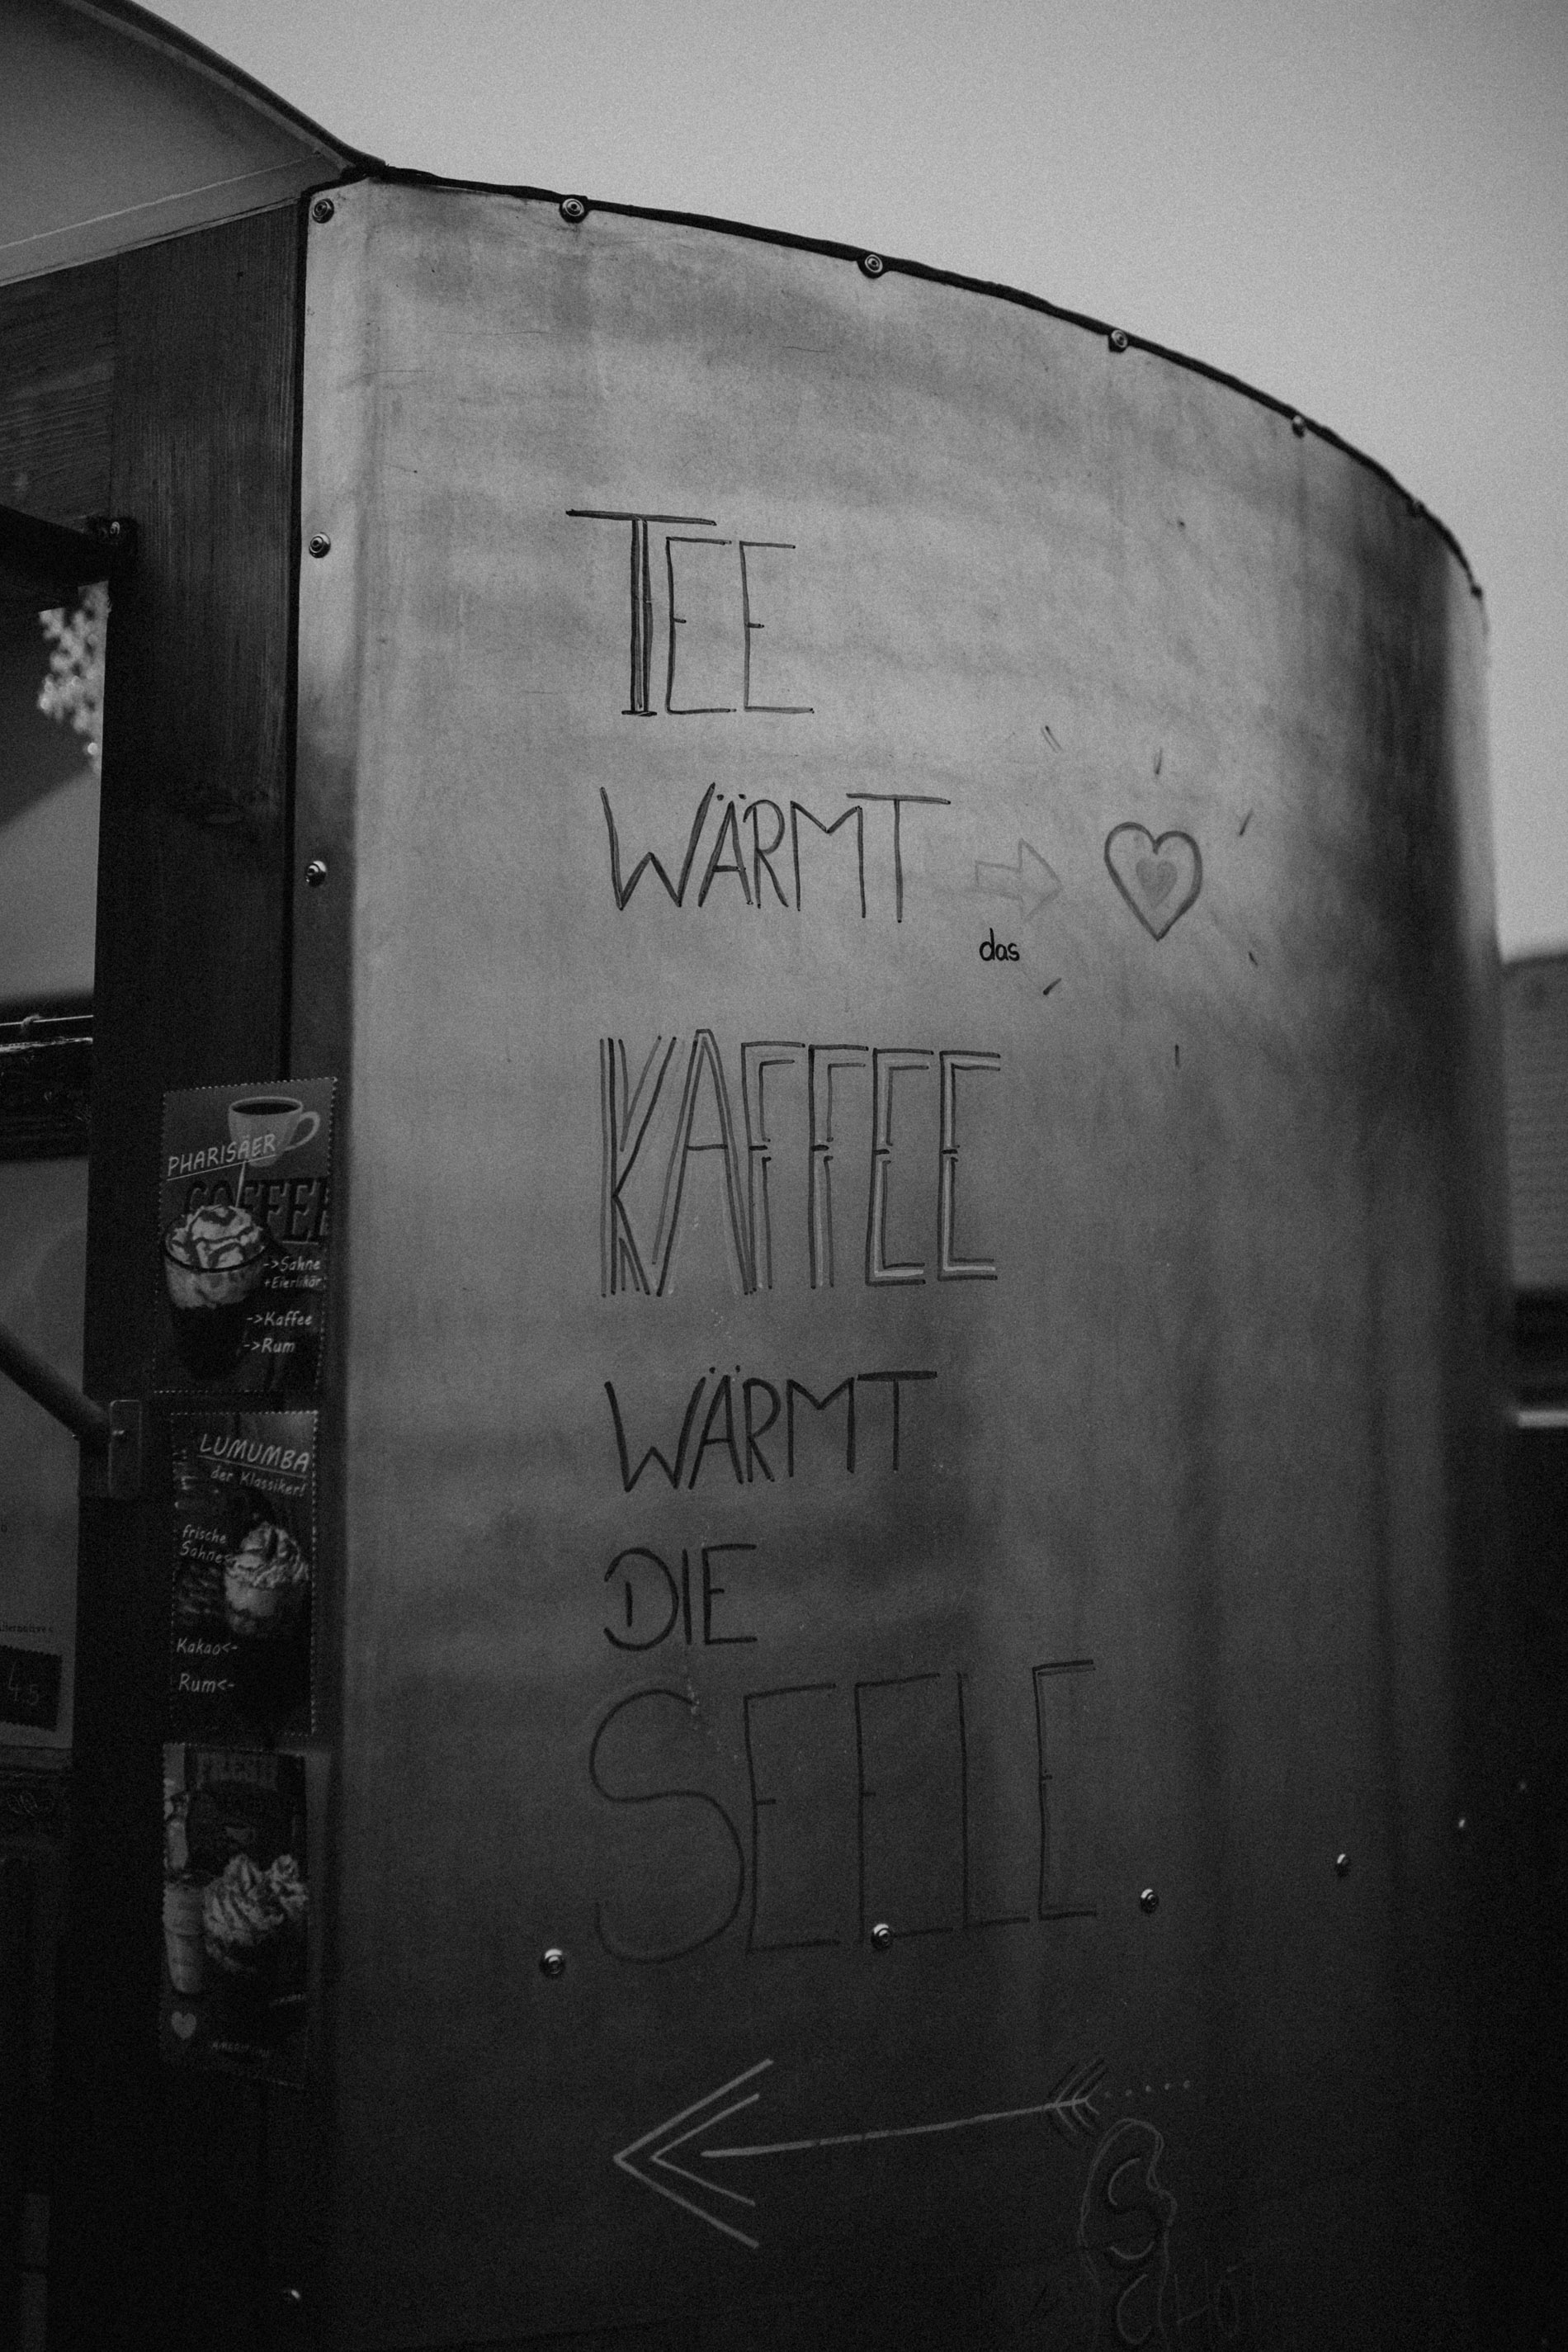 TEE
WÄRMT
das
KAFFEE
WÄRMT
DIE
SEELE
PHARISÄER
COFFEE
->Sahne
+Eierlikör
->Kaffee
->Rum
LUMUMBA
der Klassiker!
frische
Sahne<-
Kakao<-
Rum<-
FRESH
4.5